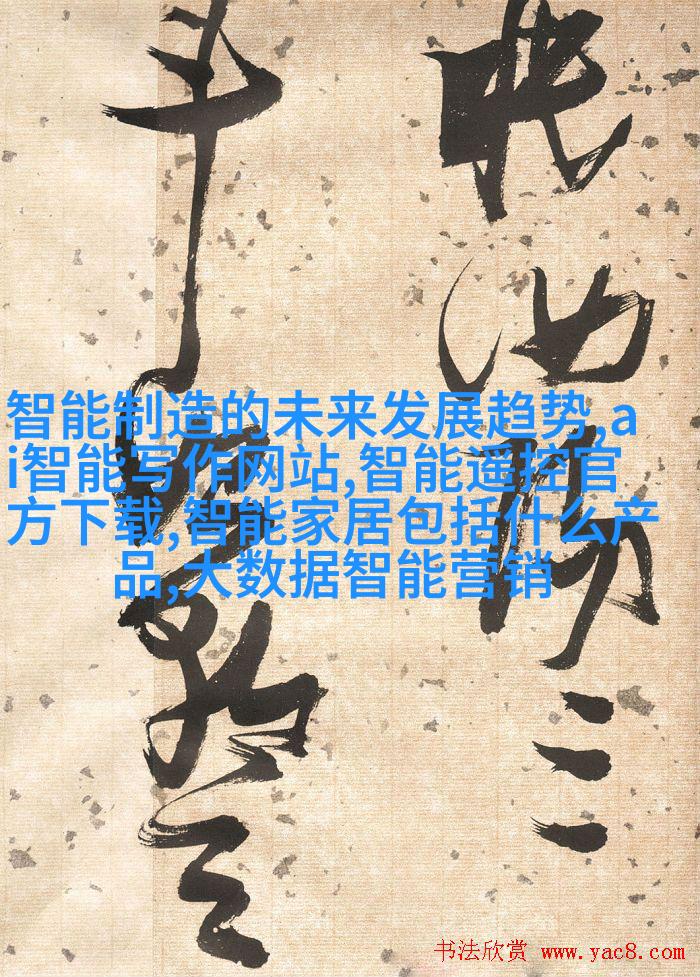 眠汝陽三
斗始朝天
智能制造的未来发展趋势,a
i智能写作网站,智能遥控官
方下载,智能家居包括什么产
品,大数据智能营销
书法欣赏 www.yac8.com